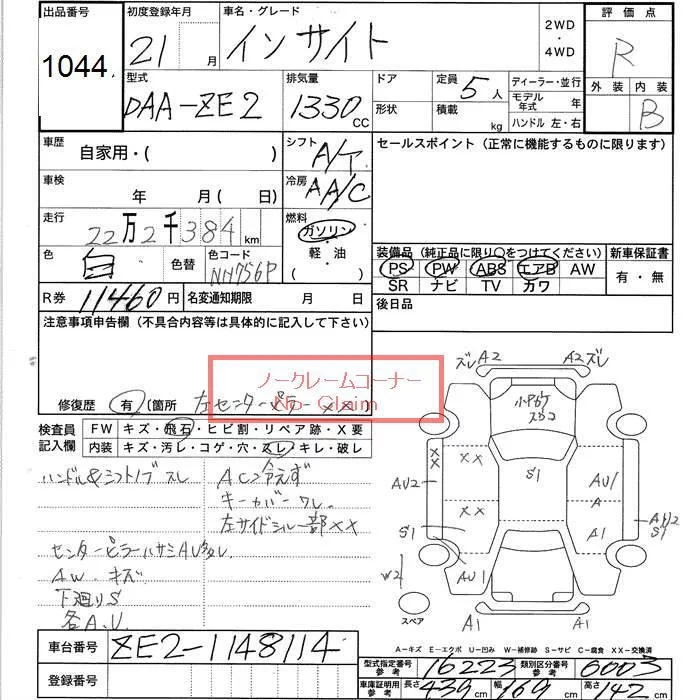 出品番号 1044
初度登録年月 21 月
車名・グレード インサイト
2WD ・ 4WD
評価点 R
外装 内装 B
型式 DAA-ZE2
排気量 1330 CC
ドア 定員 5 人
形状 積載 kg
ディーラー・並行
モデル年式 年
ハンドル 左・右
車歴 自家用・( )
シフト A/T
セールスポイント (正常に機能するものに限ります)
車検 年 月( 日)
冷房 AA/C
走行 22万2千384km
燃料 ガソリン・軽・油 ( )
色 白 色替
色コード NH756P
装備品 (純正品に限り○をつけてください)
PS PW ABS エアB AW
SR ナビ TV カワ
新車保証書 有・無
R券 11460円
名変通知期限 月 日
後日品
注意事項申告欄 (不具合内容等は具体的に記入して下さい)
ノークレームコーナー
No- Claim
修復歴 有 〔箇所 左センターピラ XX
検査員記入欄
FW キズ・飛石・ヒビ割・リペア跡・X要
内装 キズ・汚レ・コゲ・穴・スレ・キレ・破レ
ハンドル&シフトノブ スレ
ACコ冷えず
キーカバーワレ
左サイドシル一部XX
センターピラーハサミAU多々
AW.キズ
下廻りS
各A.U
ズレ A2 A2 ズレ
小円かケ
XX XX S1 AU1 A
AU2 XX A1
S1 S1
W2 AU1
A1 A1
スペア
車台番号 ZE2-1148114
登録番号
A-キズ E-エクボ U-凹み W-補修跡 S-サビ C-腐食 XX-交換済
型式指定番号 参考 16223 類別区分番号 参考 6003
車庫証明用 参考 長さ 439cm 幅 169cm 高さ 142cm